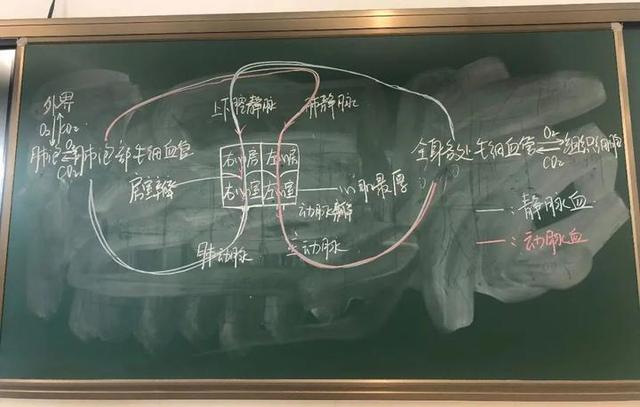 外界
O₂ CO₂
上下腔静脉 肺静脉
肺泡 O₂ CO₂ 肺泡部毛细血管
全身各处毛细血管 O₂ CO₂ 组织细胞
右心房 左心房
右心室 左心室
房室瓣
心肌最厚
动脉瓣
肺动脉 主动脉
—:静脉血
—:动脉血